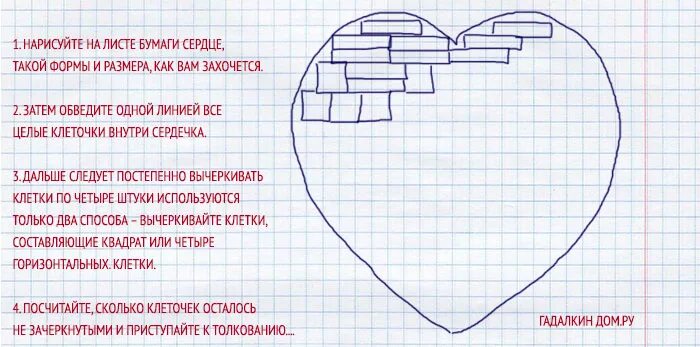 1. НАРИСУЙТЕ НА ЛИСТЕ БУМАГИ СЕРДЦЕ,
ТАКОЙ ФОРМЫ И РАЗМЕРА, КАК ВАМ ЗАХОЧЕТСЯ.
2. ЗАТЕМ ОБВЕДИТЕ ОДНОЙ ЛИНИЕЙ ВСЕ
ЦЕЛЫЕ КЛЕТОЧКИ ВНУТРИ СЕРДЕЧКА.
3. ДАЛЬШЕ СЛЕДУЕТ ПОСТЕПЕННО ВЫЧЕРКИВАТЬ
КЛЕТКИ ПО ЧЕТЫРЕ ШТУКИ ИСПОЛЬЗУЮТСЯ
ТОЛЬКО ДВА СПОСОБА – ВЫЧЕРКИВАЙТЕ КЛЕТКИ,
СОСТАВЛЯЮЩИЕ КВАДРАТ ИЛИ ЧЕТЫРЕ
ГОРИЗОНТАЛЬНЫХ. КЛЕТКИ.
4. ПОСЧИТАЙТЕ, СКОЛЬКО КЛЕТОЧЕК ОСТАЛОСЬ
НЕ ЗАЧЕРКНУТЫМИ И ПРИСТУПАЙТЕ К ТОЛКОВАНИЮ....
ГАДАЛКИН ДОМ.РУ